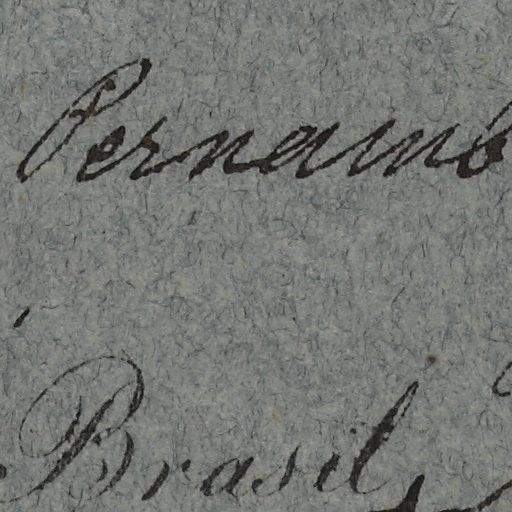 Pernamb
Brasil